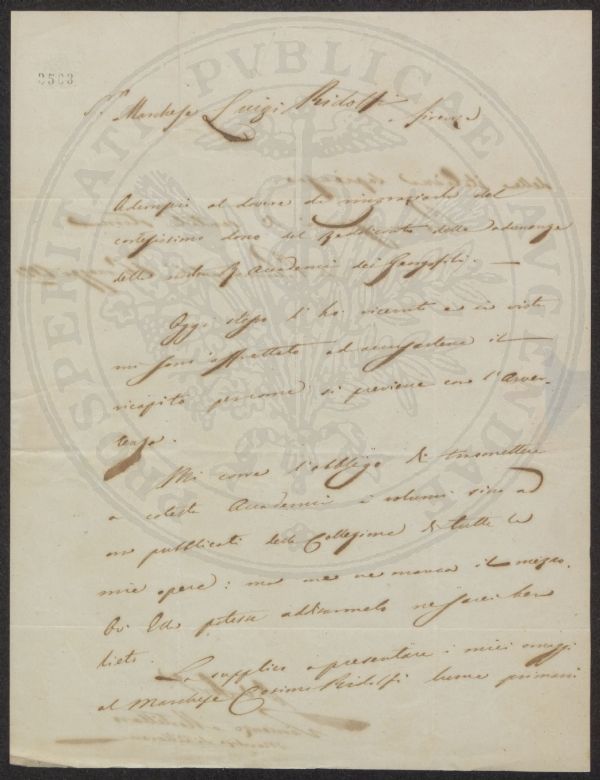 2503
Sr. Marchese Luigi Ridolfi Firenze
PROSPERITATI PVBLICAE AVGENDAE
Adempio al dovere di ringraziarla del
cortesissimo dono del Rendiconto delle adunanze
della R. Accademia dei Georgofili. —
Oggi stesso l'ho ricevuto e in vista
mi sono affrettato ad accusarlene il
ricapito si previene con l'Avver-
tenza.
Mi corre l'obbligo di trasmettere
a cotesta Accademia i volumi sino ad
ora pubblicati della Collezione di tutte le
mie opere: ma me ne manca il mezzo.
Se Ella potesse additarmelo ne sarei ben
lieto.
La supplico a presentare i miei omaggi
al Marchese Cosimo Ridolfi